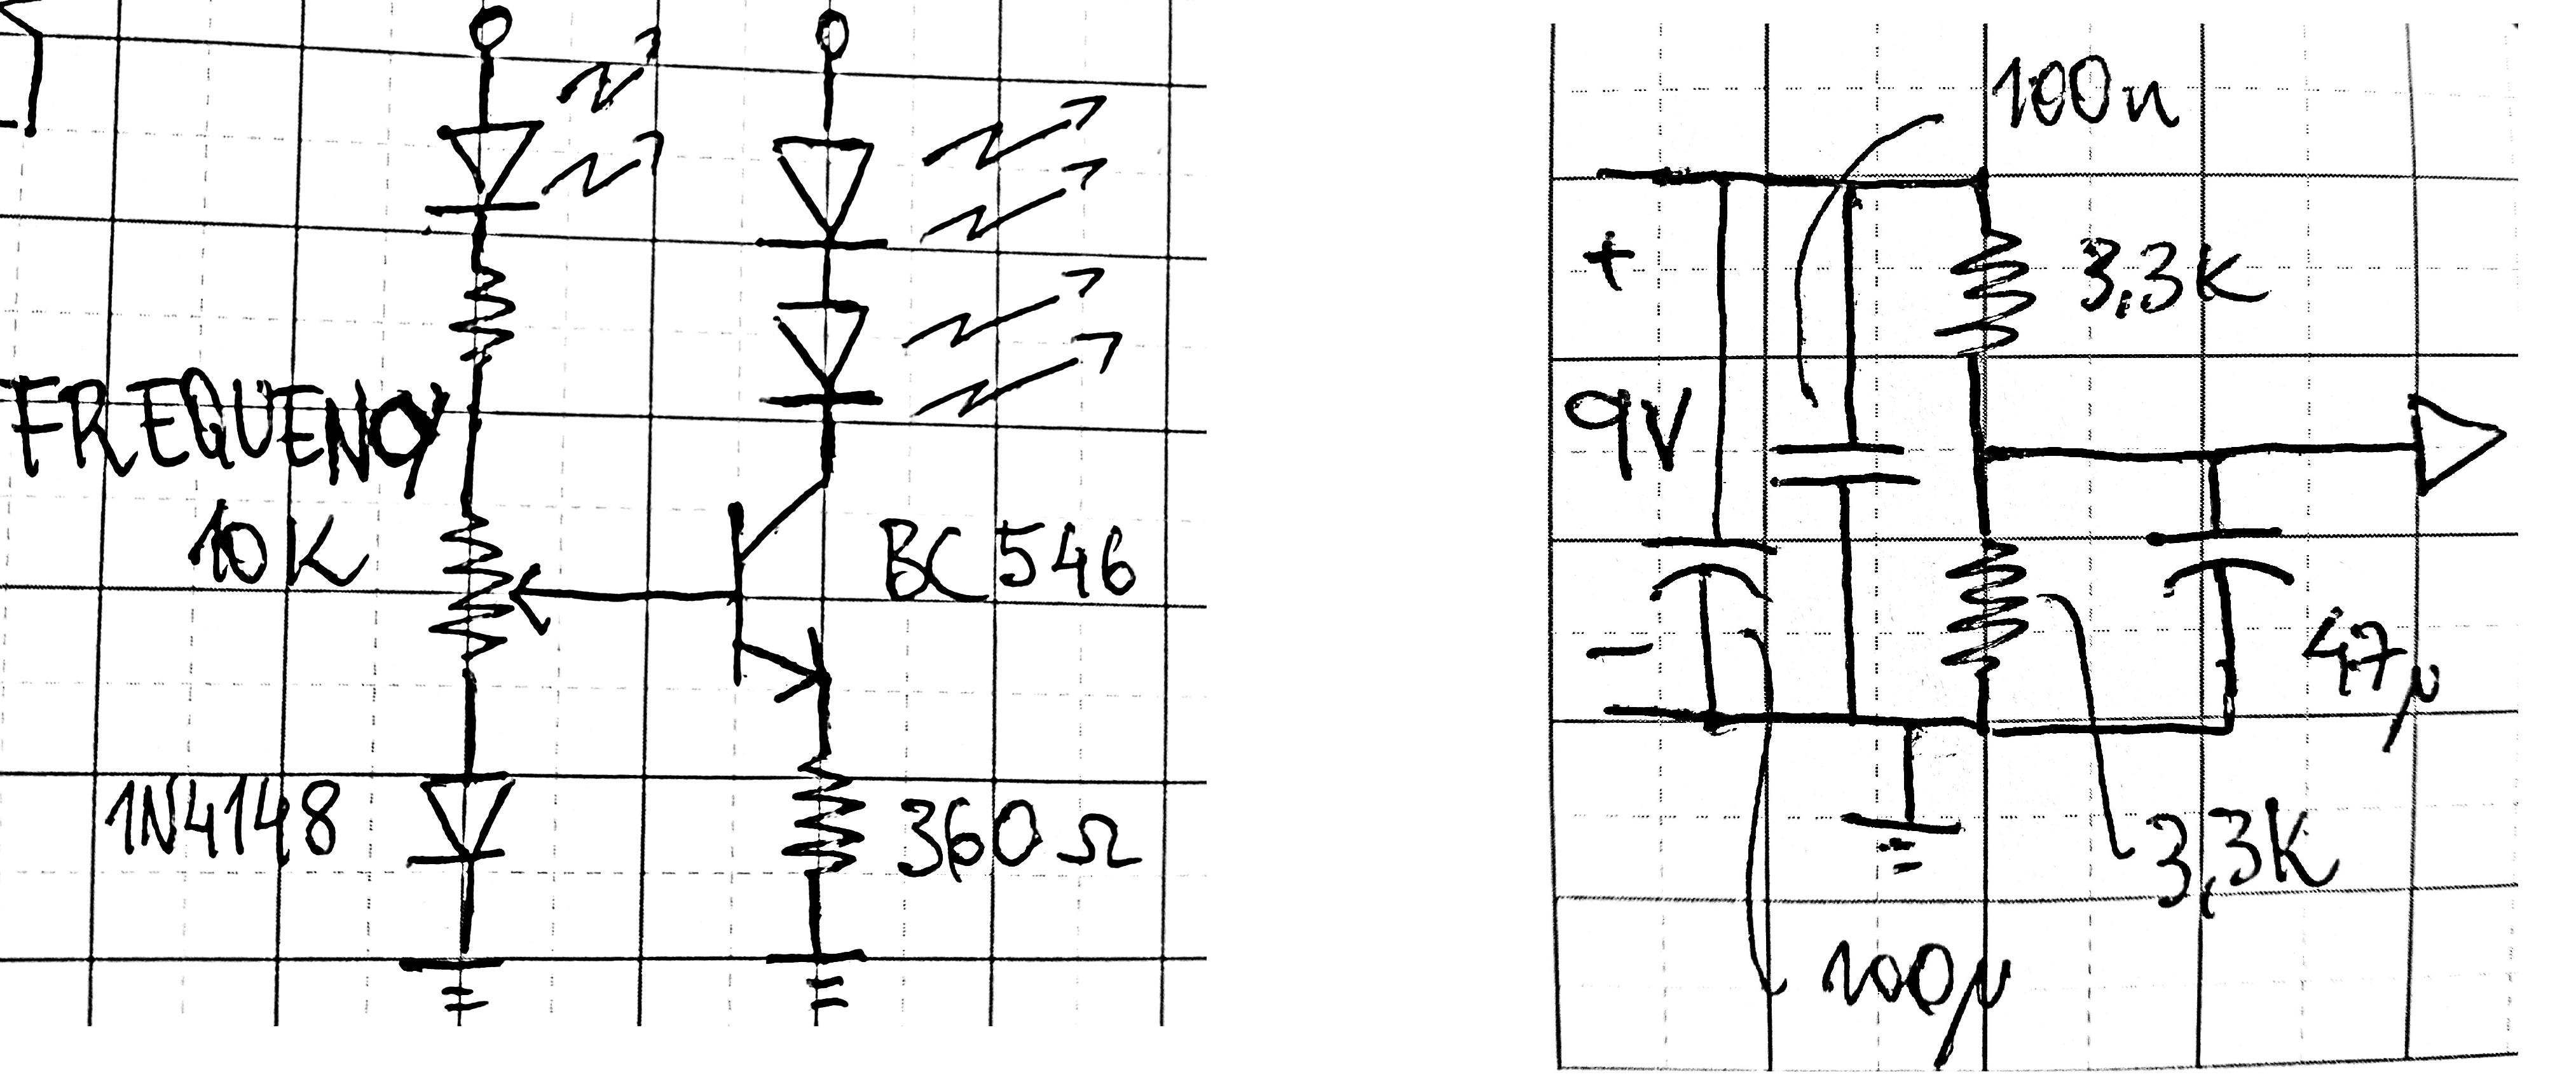 FREQUENCY
10K
BC546
1N4148
360Ω
100n
+
3,3K
9V
-
47µ
3,3K
100µ